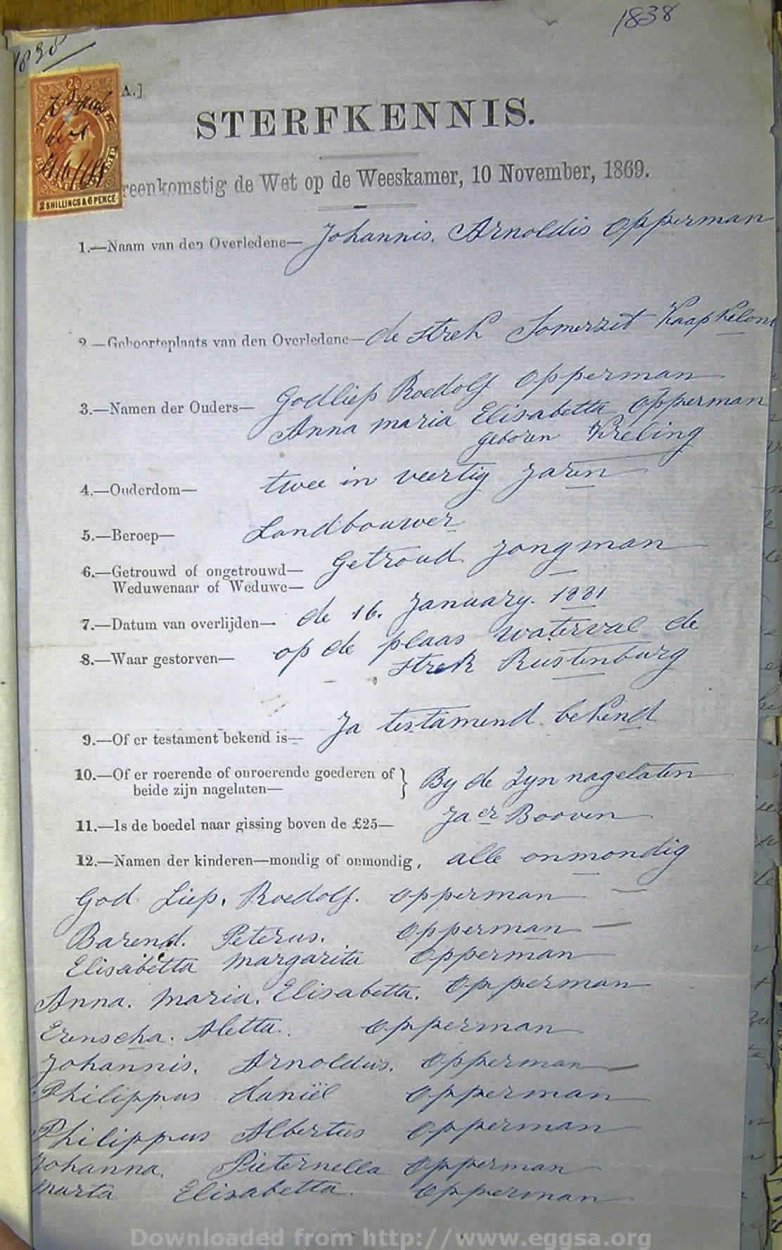 1838
1838
A.]
STERFKENNIS.
reenkomstig de Wet op de Weeskamer, 10 November, 1869.
2 SHILLINGS & 6 PENCE
1.—Naam van den Overledene— Johannis. Arnoldis Opperman
2.—Geboorteplaats van den Overledene— de Strek Somerzet Kaap Kelone
3.—Namen der Ouders— Godliep Roedolf Opperman
Anna maria Elisabetta Opperman
geboren Kreling
4.—Ouderdom— twee in veertig jaren
5.—Beroep— Landbouwer
6.—Getrouwd of ongetrouwd— Getroud jongman
Weduwenaar of Weduwe—
7.—Datum van overlijden— de 16. January. 1881
8.—Waar gestorven— op de plaas waterval de
strek Rustenburg
9.—Of er testament bekend is— Ja testamend bekend
10.—Of er roerende of onroerende goederen of } By de zyn nagelaten
beide zijn nagelaten—
11.—Is de boedel naar gissing boven de £25— Ja er Booven
12.—Namen der kinderen—mondig of onmondig, alle onmondig
God Liep. Roedolf. Opperman
Barend. Peterus. Opperman
Elisabetta Margarita Opperman
Anna. Maria. Elisabetta. Opperman
Aletta. Opperman
Johannis. Arnoldus. Opperman
Philippus Daniël Opperman
Philippus Albertus Opperman
Johanna. Pieternella Opperman
Marta Elisabetta. Opperman
Downloaded from http://www.eggsa.org